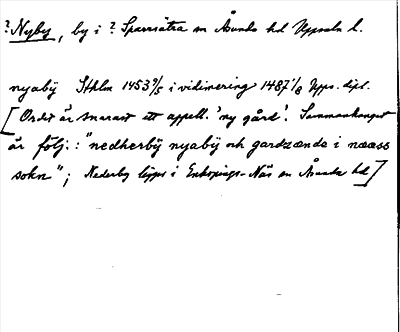 ? Nyby, by i ? Sparrsätra sn Åsunda hd Uppsala l.
nyabÿ Sthlm 1453 9/5 i vidimering 1487 1/8 Upps. dipl.
[Ordet är snarast ett appell. 'ny gård'. Sammanhanget
är följ.: "nedherbÿ nyabÿ och gardzænda i næss
sokn"; Nederby ligger i Enköpings-Näs sn Åsunda hd]